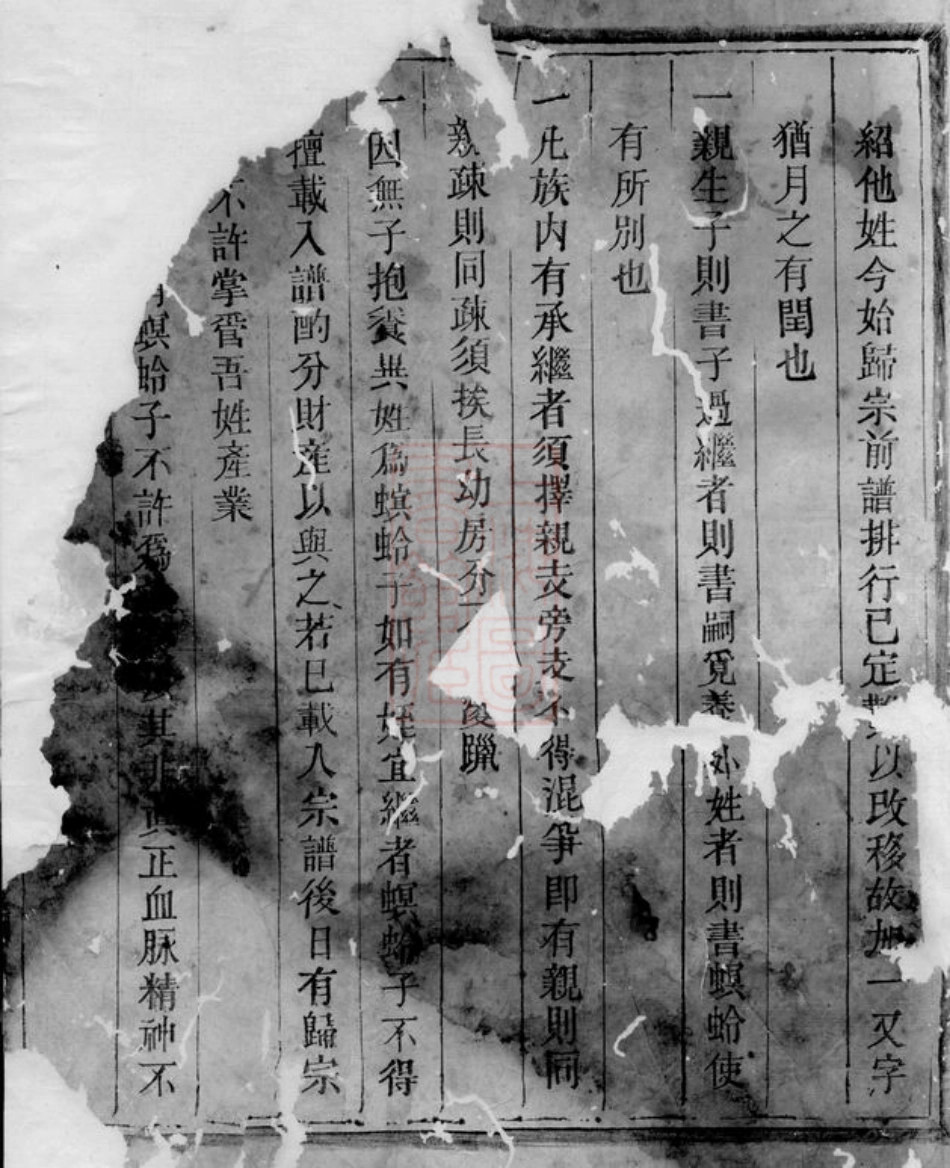 紹他姓今始歸宗前譜排行已定難以改移故加一又字
猶月之有閏也
一親生子則書子過繼者則書嗣覓養外姓者則書螟蛉使
有所別也
一凡族内有承繼者須擇親支旁支不得混爭即有親則同
親疎則同疎須挨長幼房分後躐
一因無子抱養異姓爲螟蛉子如有姪宜繼者螟蛉子不得
擅載入譜酌分財産以與之若已載入宗譜後日有歸宗
不許掌管吾姓產業
螟蛉子不許爲其非真正血脉精神不